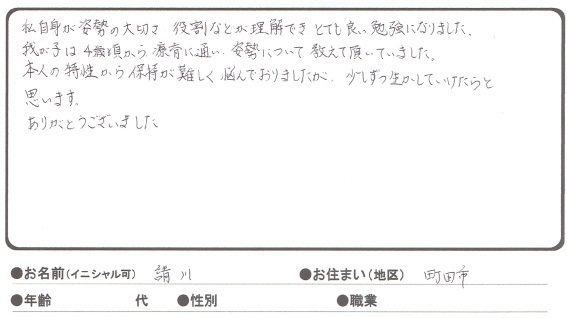 私自身が姿勢の大切さ 役割などが理解でき とても良い勉強になりました。
我が子は4歳頃から療育に通い 姿勢について教えて頂いていました。
本人の特性から保持が難しく悩んでおりましたが、少しずつ生かしていけたらと
思います。
ありがとうございました
●お名前(イニシャル可) 請川 ●お住まい(地区) 町田市
●年齢 代 ●性別 ●職業